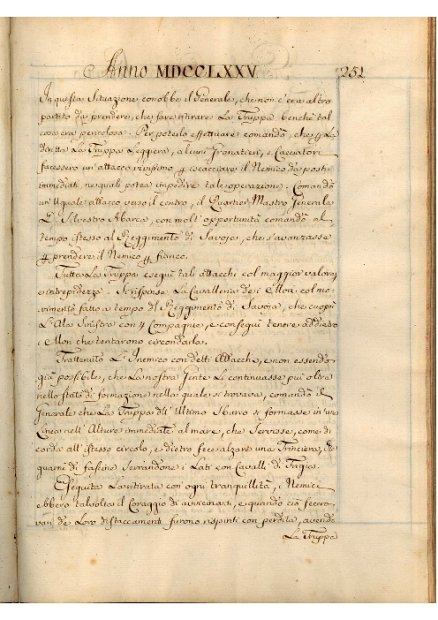 Anno MDCCLXXV.
251
In questa Situazione conobbe il Generale, che non c'era altro
partito da prendere, che fare ritirare La Truppa benchè tal
cosa era pericolosa. Per poterlo effettuare comandò, che
La Truppa Leggiera, alcuni Granatieri, e Cacciatori
facessero un'attacco vivissimo scacciare il Nemico da posti
immediati, ne quali potea impedire tale operazione. Comandò
un'Uguale attacco verso il centro, il Quartier Mastro Generale
D. Silvestro Abarca, con molt'opportunità comandò al
tempo istesso al Reggimento di Savoja, che s'avanzasse
prendere il Nemico fianco.
Tutta La Truppa eseguì tali attacchi col maggior valore,
e intrepidezza. Si rispose La Cavalleria de i Mori col mo-
vimento fatto a tempo del Reggimento di Savoja, che coprì
L'Ala Sinistra con Compagnie, e conseguì tenere addietro
i Mori che tentarono circondarla.
Trattenuto L'Inemico con detti Attacchi, e non essendo
già possibile, che La nostra Gente Li continuasse più oltre
nello stato di formazione nella quale si trovava, comandò il
Generale che La Truppa dell'Ultimo Sbarco si formasse in una
Linea nell'Alture immediate al mare, che Servisse, come di
corda all'istesso circolo, e dietro fece alzare una Trinciera,
di fascine Serrandone i Lati con Cavalli di Frigia.
Eseguita La ritirata con ogni tranquillità, i Nemici
ebbero talvolta il Coraggio di avvicinarsi, e quando ciò fecero
Loro distaccamenti furono respinti con perdita, avendo
La Truppa